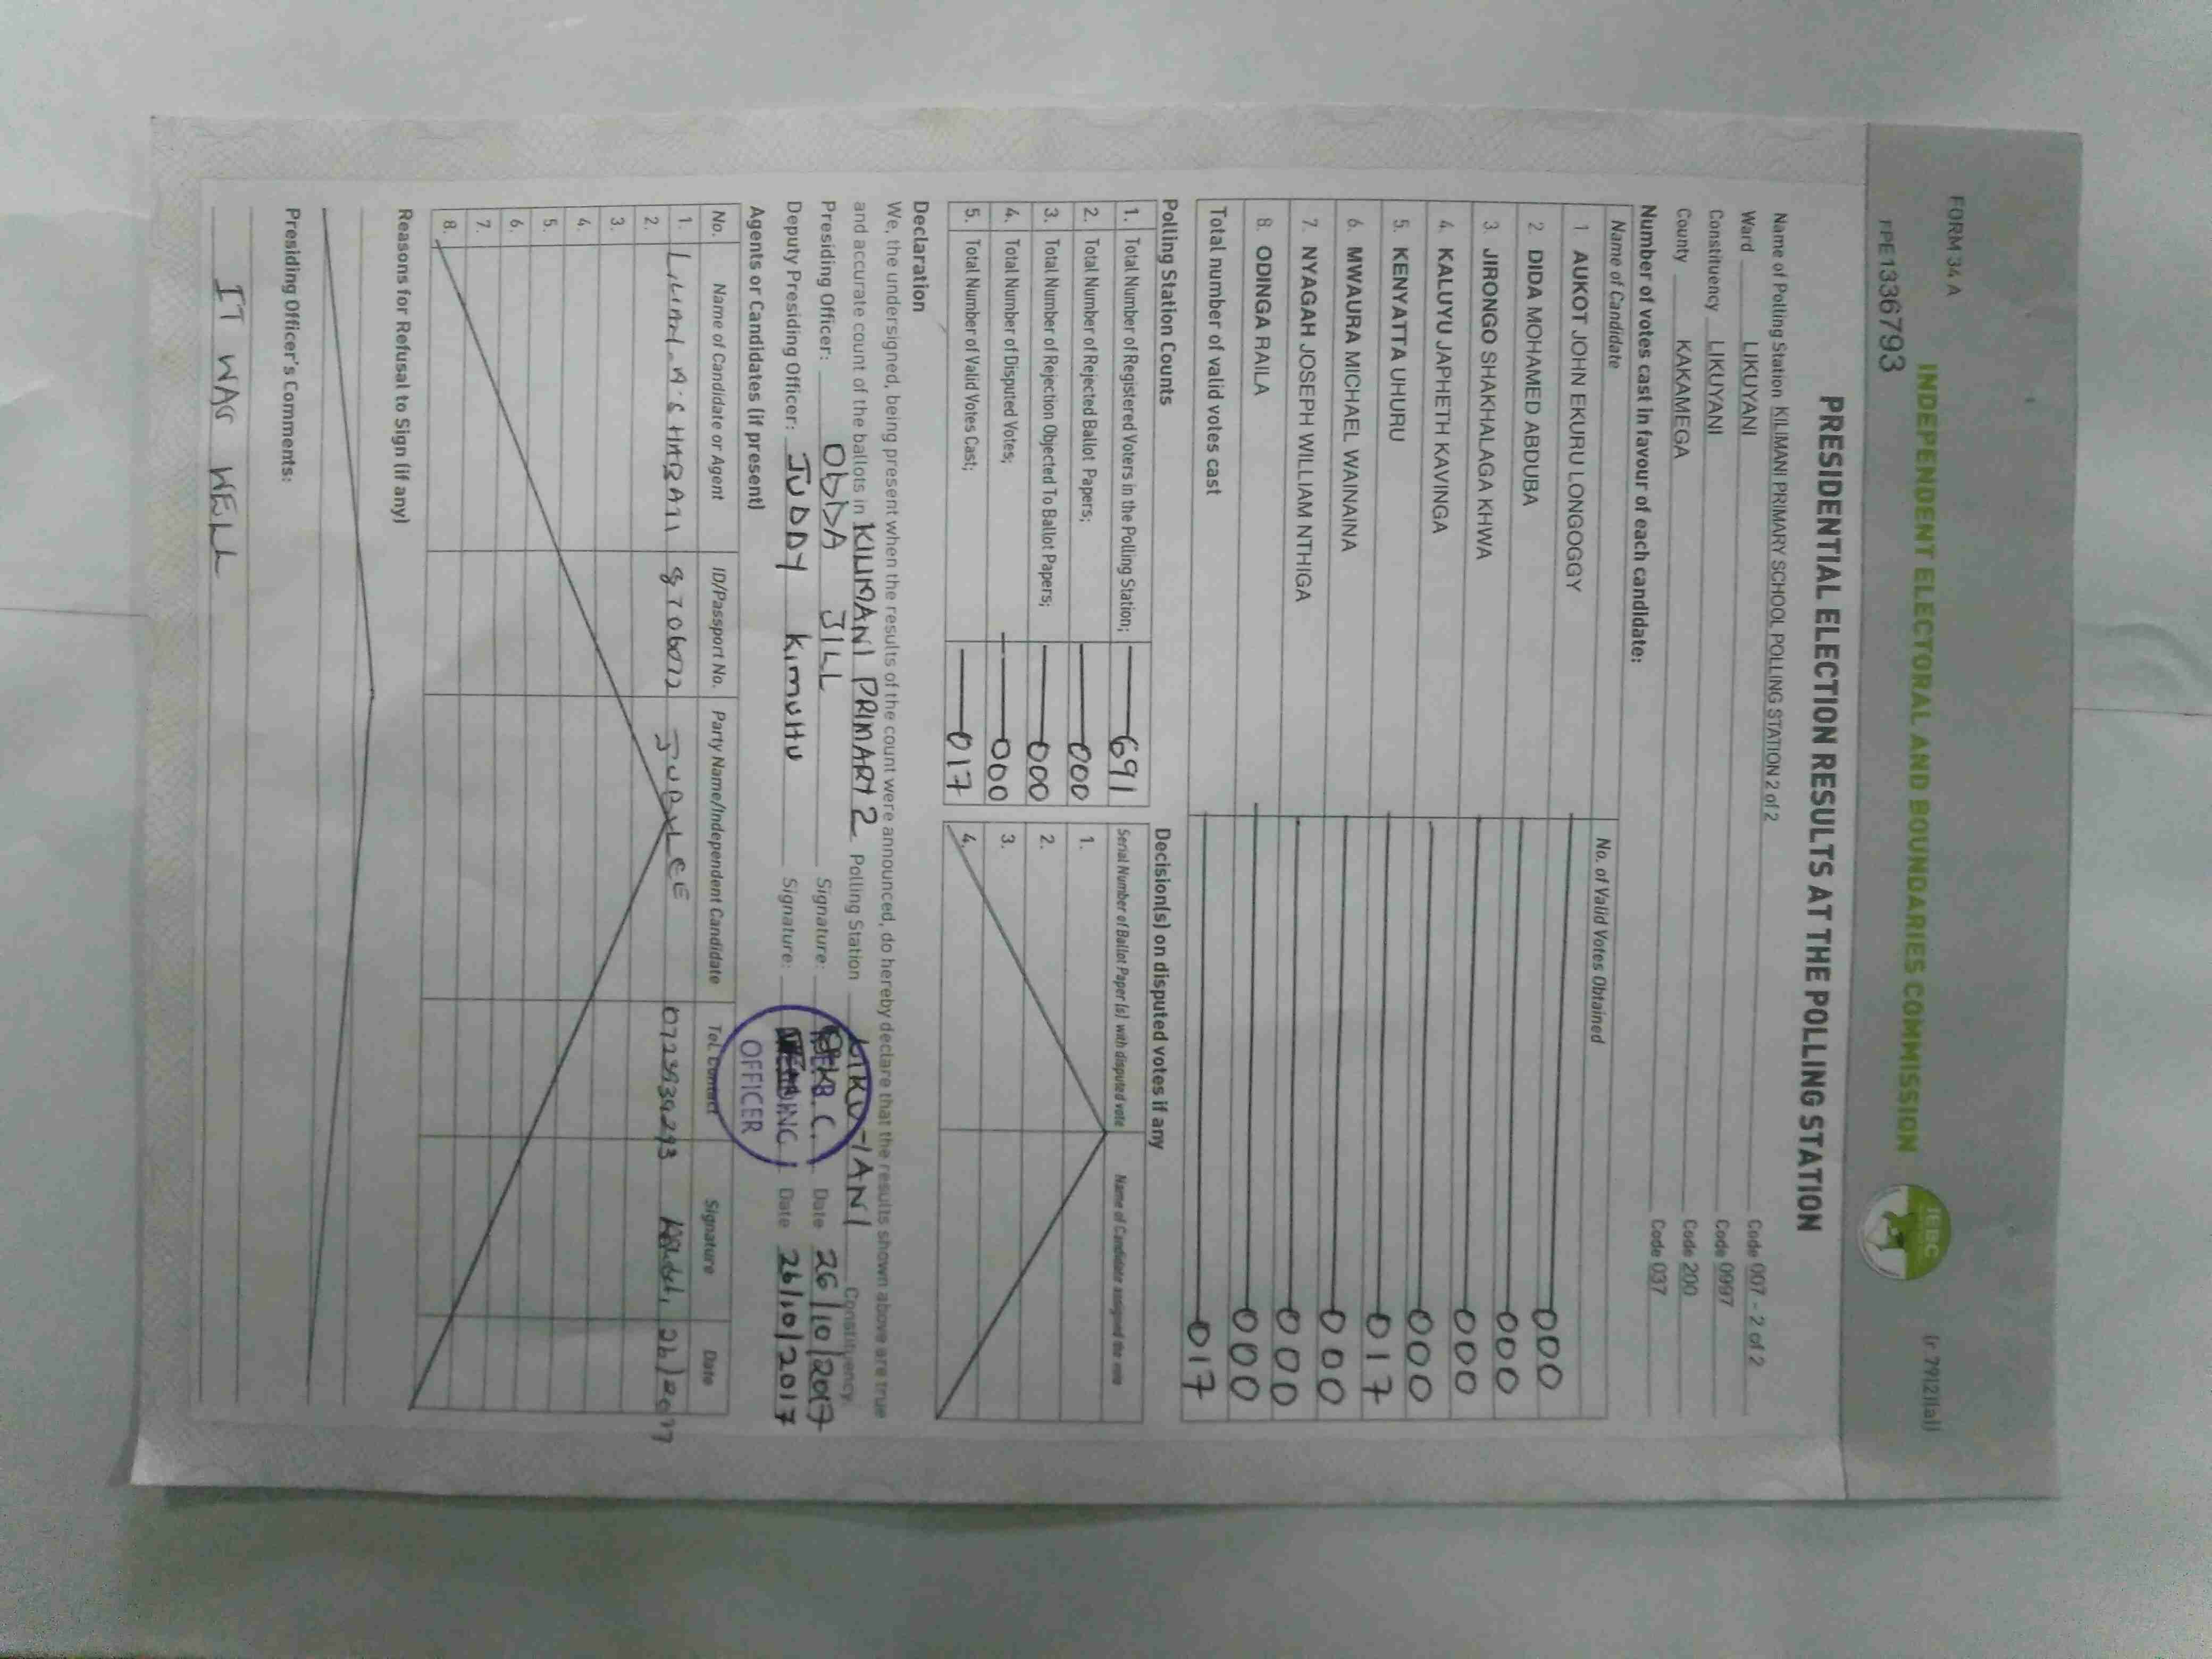 FORM 34 A
(r 79(2)(a))
INDEPENDENT ELECTORAL AND BOUNDARIES COMMISSION
IEBC
PPE1336793
PRESIDENTIAL ELECTION RESULTS AT THE POLLING STATION
Name of Polling Station KILIMANI PRIMARY SCHOOL POLLING STATION 2 of 2 Code 007 - 2 of 2
Ward LIKUYANI Code 0997
Constituency LIKUYANI Code 200
County KAKAMEGA Code 037
Number of votes cast in favour of each candidate:
Name of Candidate No. of Valid Votes Obtained
1. AUKOT JOHN EKURU LONGOGGY 000
2. DIDA MOHAMED ABDUBA 000
3. JIRONGO SHAKHALAGA KHWA 000
4. KALUYU JAPHETH KAVINGA 000
5. KENYATTA UHURU 017
6. MWAURA MICHAEL WAINAINA 000
7. NYAGAH JOSEPH WILLIAM NTHIGA 000
8. ODINGA RAILA 000
Total number of valid votes cast 017
Polling Station Counts
1. Total Number of Registered Voters in the Polling Station; 691
2. Total Number of Rejected Ballot Papers; 000
3. Total Number of Rejection Objected To Ballot Papers; 000
4. Total Number of Disputed Votes; 000
5. Total Number of Valid Votes Cast; 017
Decision(s) on disputed votes if any
Serial Number of Ballot Paper (s) with disputed vote Name of Candidate assigned the vote
1.
2.
3.
4.
Declaration
We, the undersigned, being present when the results of the count were announced, do hereby declare that the results shown above are true
and accurate count of the ballots in KILIMANI PRIMARY 2 Polling Station LIKUYANI Constituency.
Presiding Officer: ODDA JILL Signature: Date 26/10/2017
Deputy Presiding Officer: JUDDY KIMUHU Signature: Date 26/10/2017
OFFICER
Agents or Candidates (if present)
No. Name of Candidate or Agent ID/Passport No. Party Name/Independent Candidate Tel. Contact Signature Date
1. LILIAN JUBILEE
2.
3.
4.
5.
6.
7.
8.
Reasons for Refusal to Sign (if any)
Presiding Officer's Comments:
IT WAS WELL